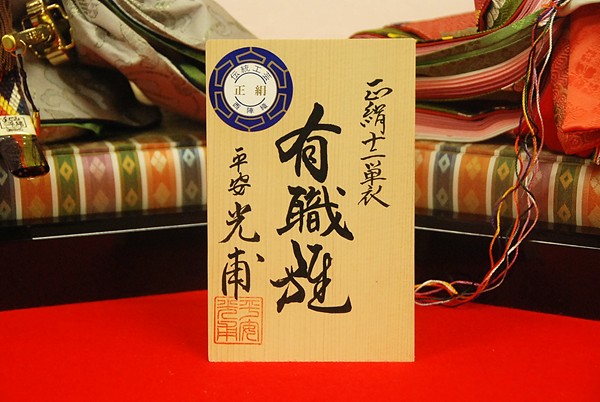 正絹十二単衣
有職雛
平安光甫
伝統工芸
正絹
西陣織
平安光甫